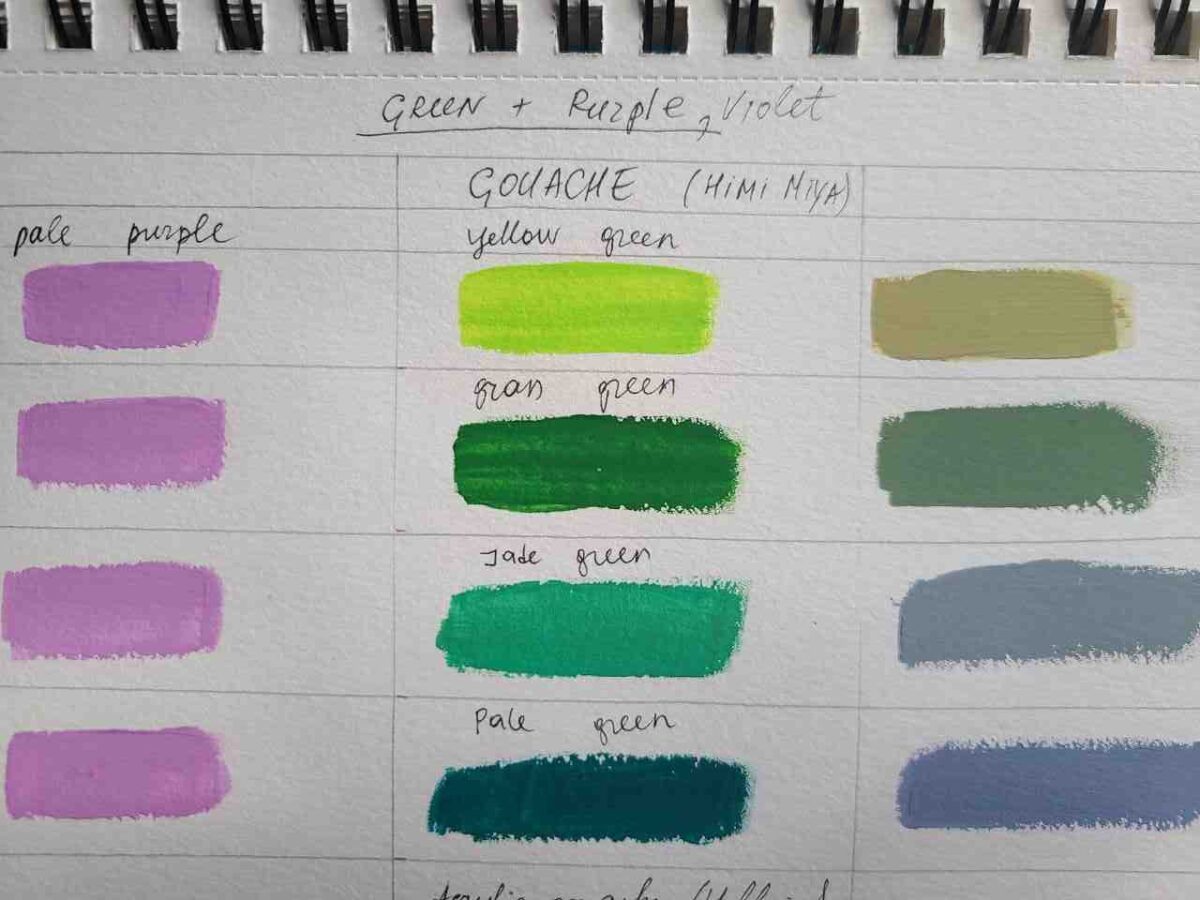 GREEN + Purple, Violet
GOUACHE (HIMI MIYA)
pale purple
yellow green
gran green
Jade green
Pale green